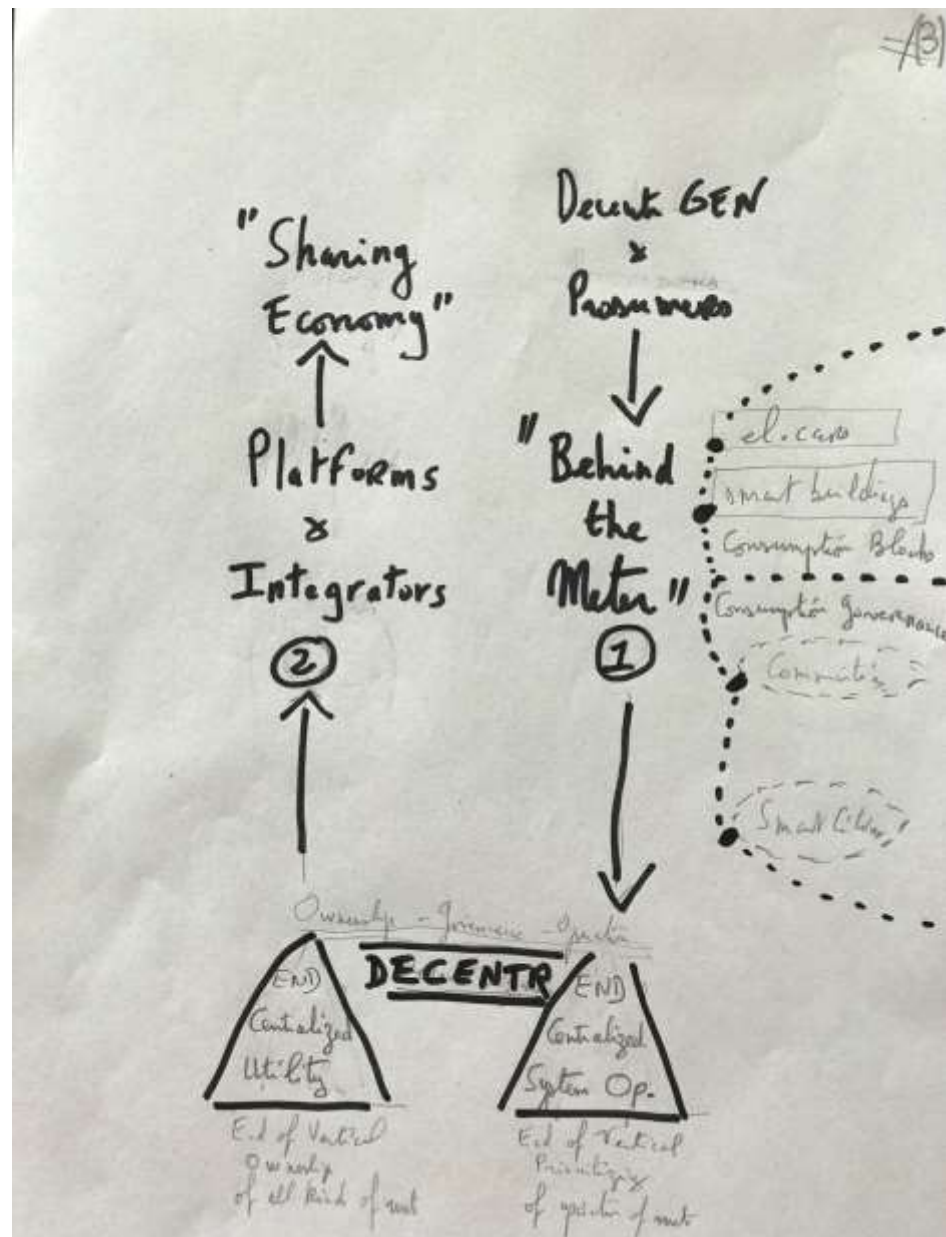 (3)
"Sharing
Economy"
Platforms
&
Integrators
2
Decentr GEN
&
Prosumers
"Behind
the
Meter"
1
el. cars
smart buildings
Consumption Blocks
Consumption Governance
Communities
Smart Cities
Ownership - Governance - Operation
DECENTR
END
Centralized
Utility
End of Vertical
Ownership
of all kind of
END
Centralized
System Op.
End of Vertical
Prioritizing
of of